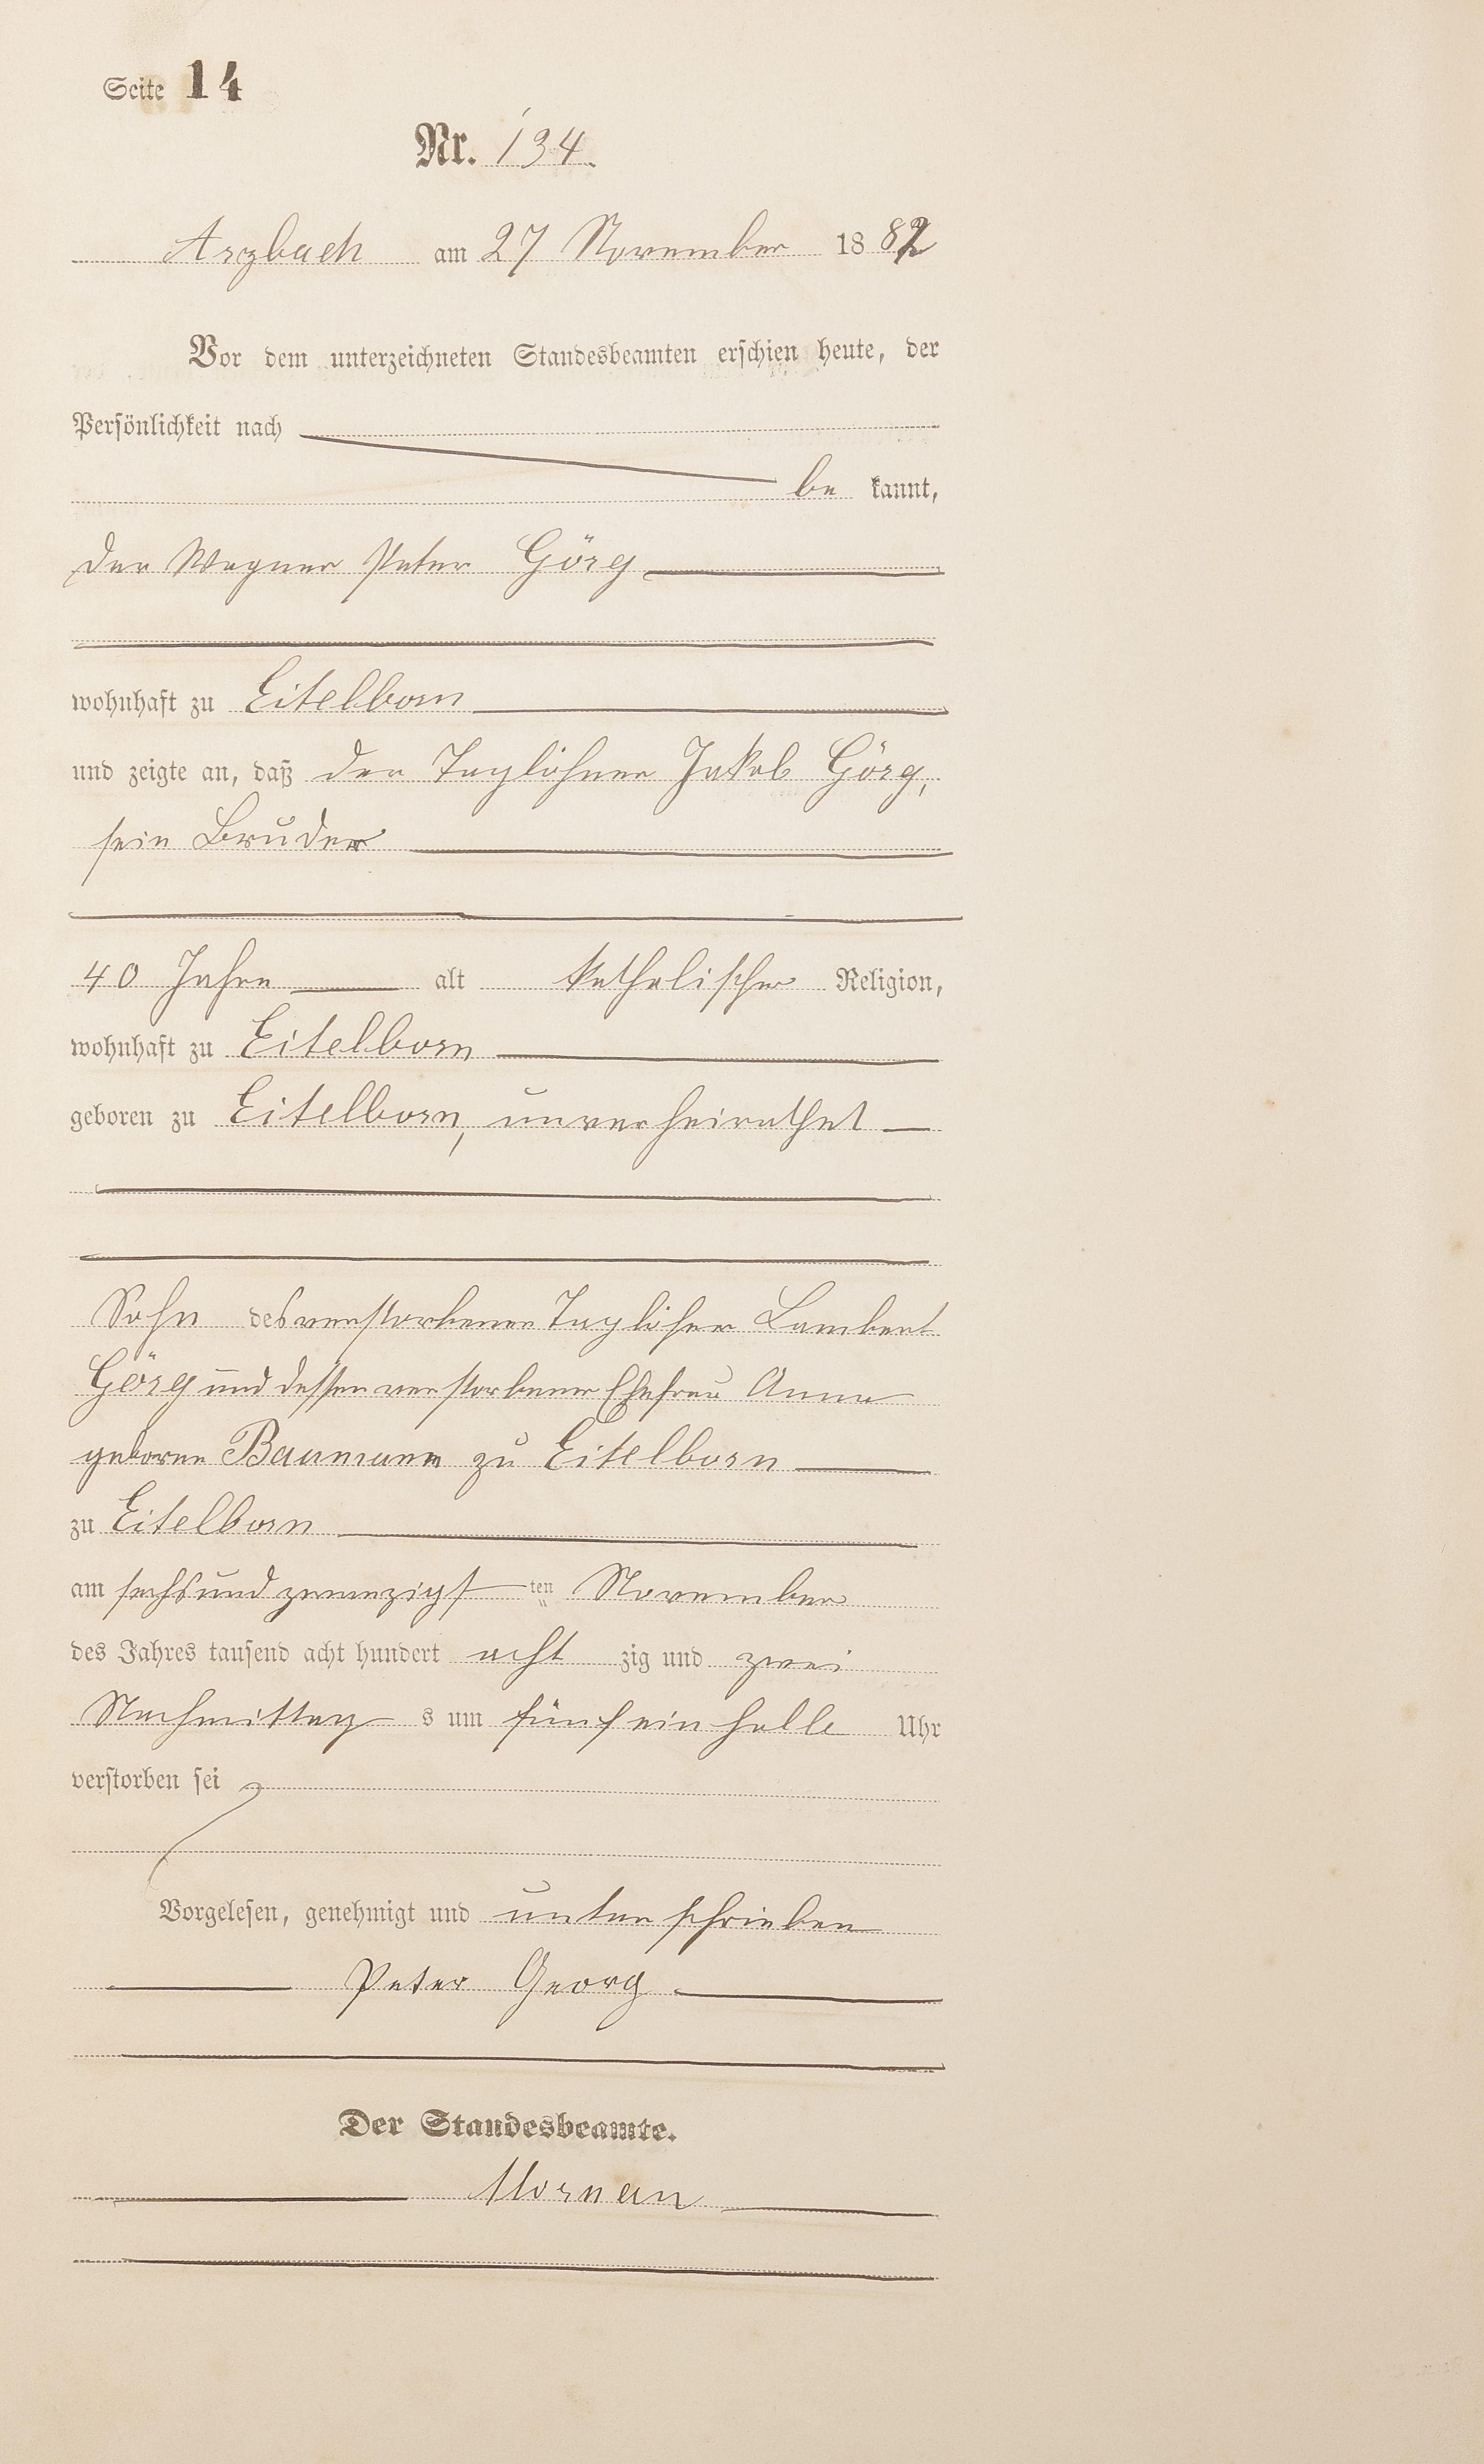 Seite 14
Nr. 134.
Arzbach am 27 November 1882
Vor dem unterzeichneten Standesbeamten erschien heute, der
Persönlichkeit nach
be kannt,
der Wagner Peter Görg
wohnhaft zu Eitelborn
und zeigte an, daß der Taglöhner Jakob Görg,
sein Bruder
40 Jahre alt katholischer Religion,
wohnhaft zu Eitelborn
geboren zu Eitelborn, unverheirathet
Sohn des verstorbenen Taglöhner Lambert
Görg und dessen verstorbener Ehefrau Anna
geborne Baumann zu Eitelborn
zu Eitelborn
am sechsundzwanzigst ten November
des Jahres tausend acht hundert acht zig und zwei
Nachmittag s um fünf ein halb Uhr
verstorben sei
Vorgelesen, genehmigt und unterschrieben
Peter Georg
Der Standesbeamte.